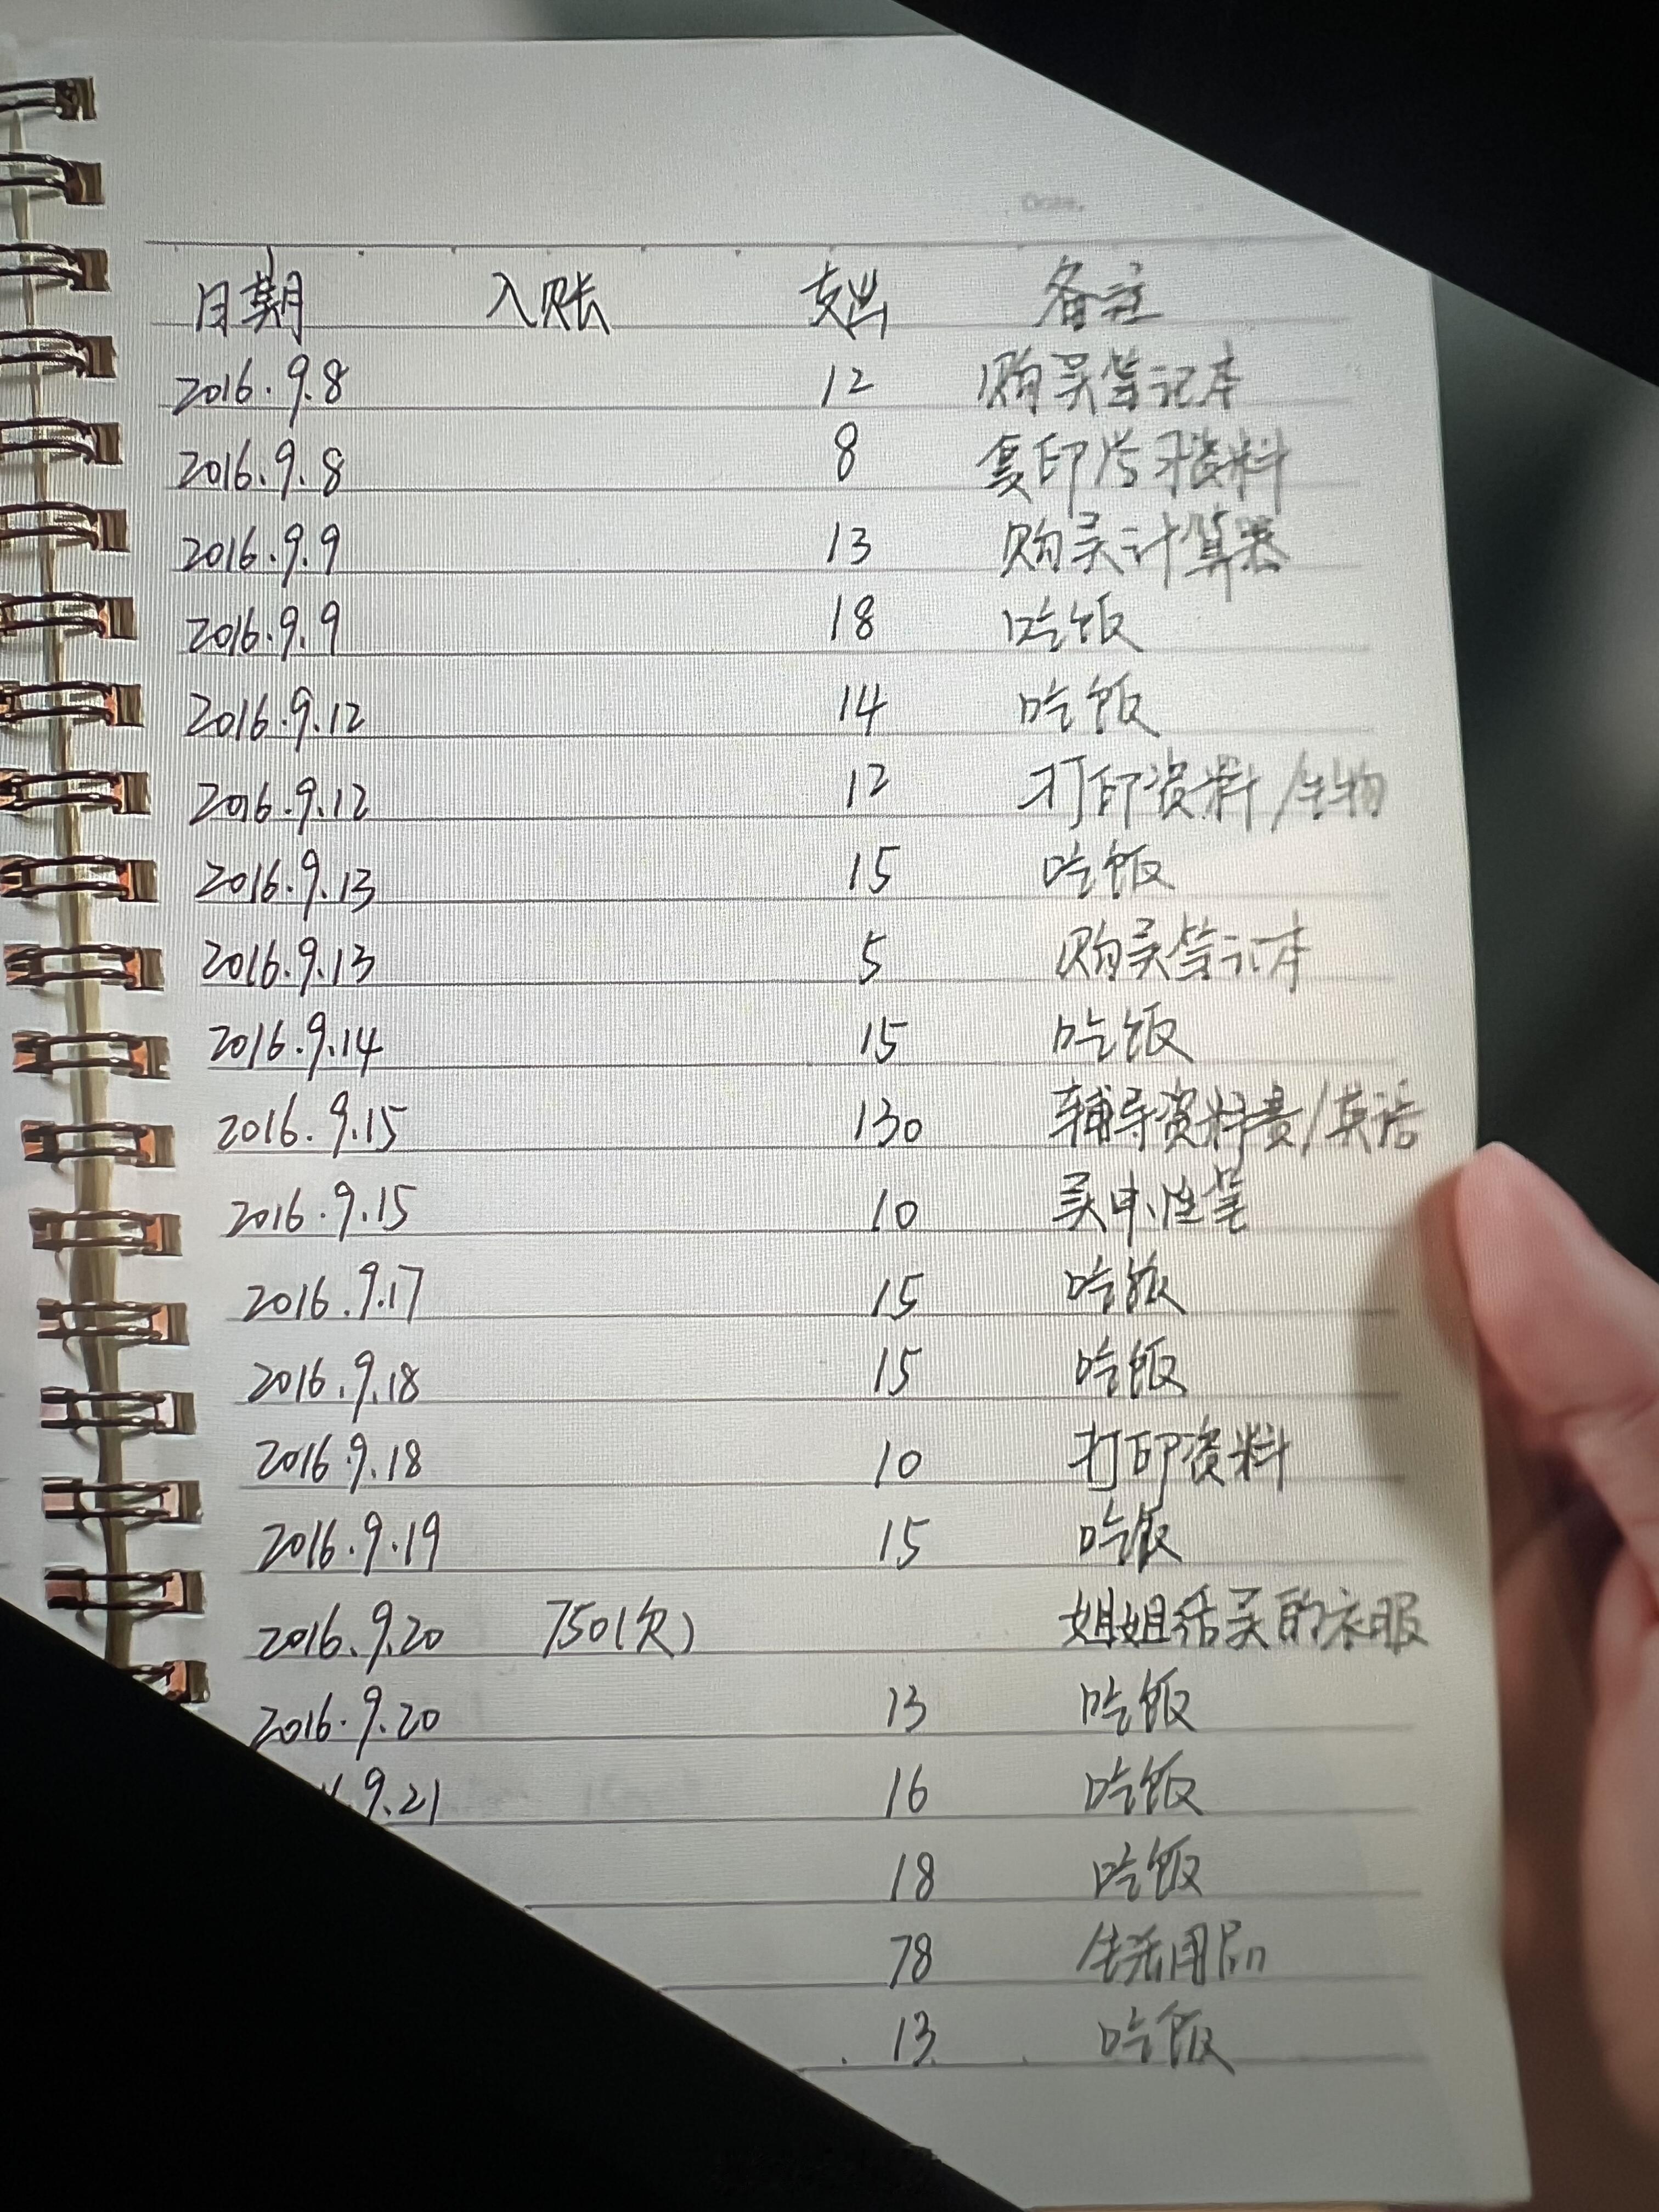 Date.
日期 入账 支出 备注
2016.9.8 12 购买笔记本
2016.9.8 8 复印学习资料
2016.9.9 13 购买计算器
2016.9.9 18 吃饭
2016.9.12 14 吃饭
2016.9.12 12 打印资料/生物
2016.9.13 15 吃饭
2016.9.13 5 购买笔记本
2016.9.14 15 吃饭
2016.9.15 130 辅导资料费/英语
2016.9.15 10 买中性笔
2016.9.17 15 吃饭
2016.9.18 15 吃饭
2016.9.18 10 打印资料
2016.9.19 15 吃饭
2016.9.20 750(欠) 姐姐给买的衣服
2016.9.20 13 吃饭
9.21 16 吃饭
18 吃饭
78 生活用品
13 吃饭